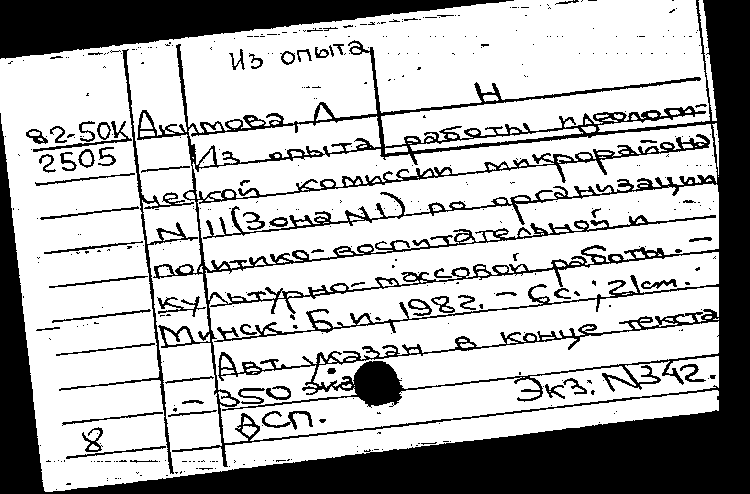 Из опыта
Н
82-50К Акимова, Л
2505 Из опыта работы идеологи-
ческой комиссии микрорайона
N 11 (Зона N1) по организации
политико-воспитательной и
культурно-массовой работы. -
Минск: Б.и., 1982. - 6с.; 21см.
Авт. указан в конце текста
. - 350 экз Экз: N342.
ДСП.
8